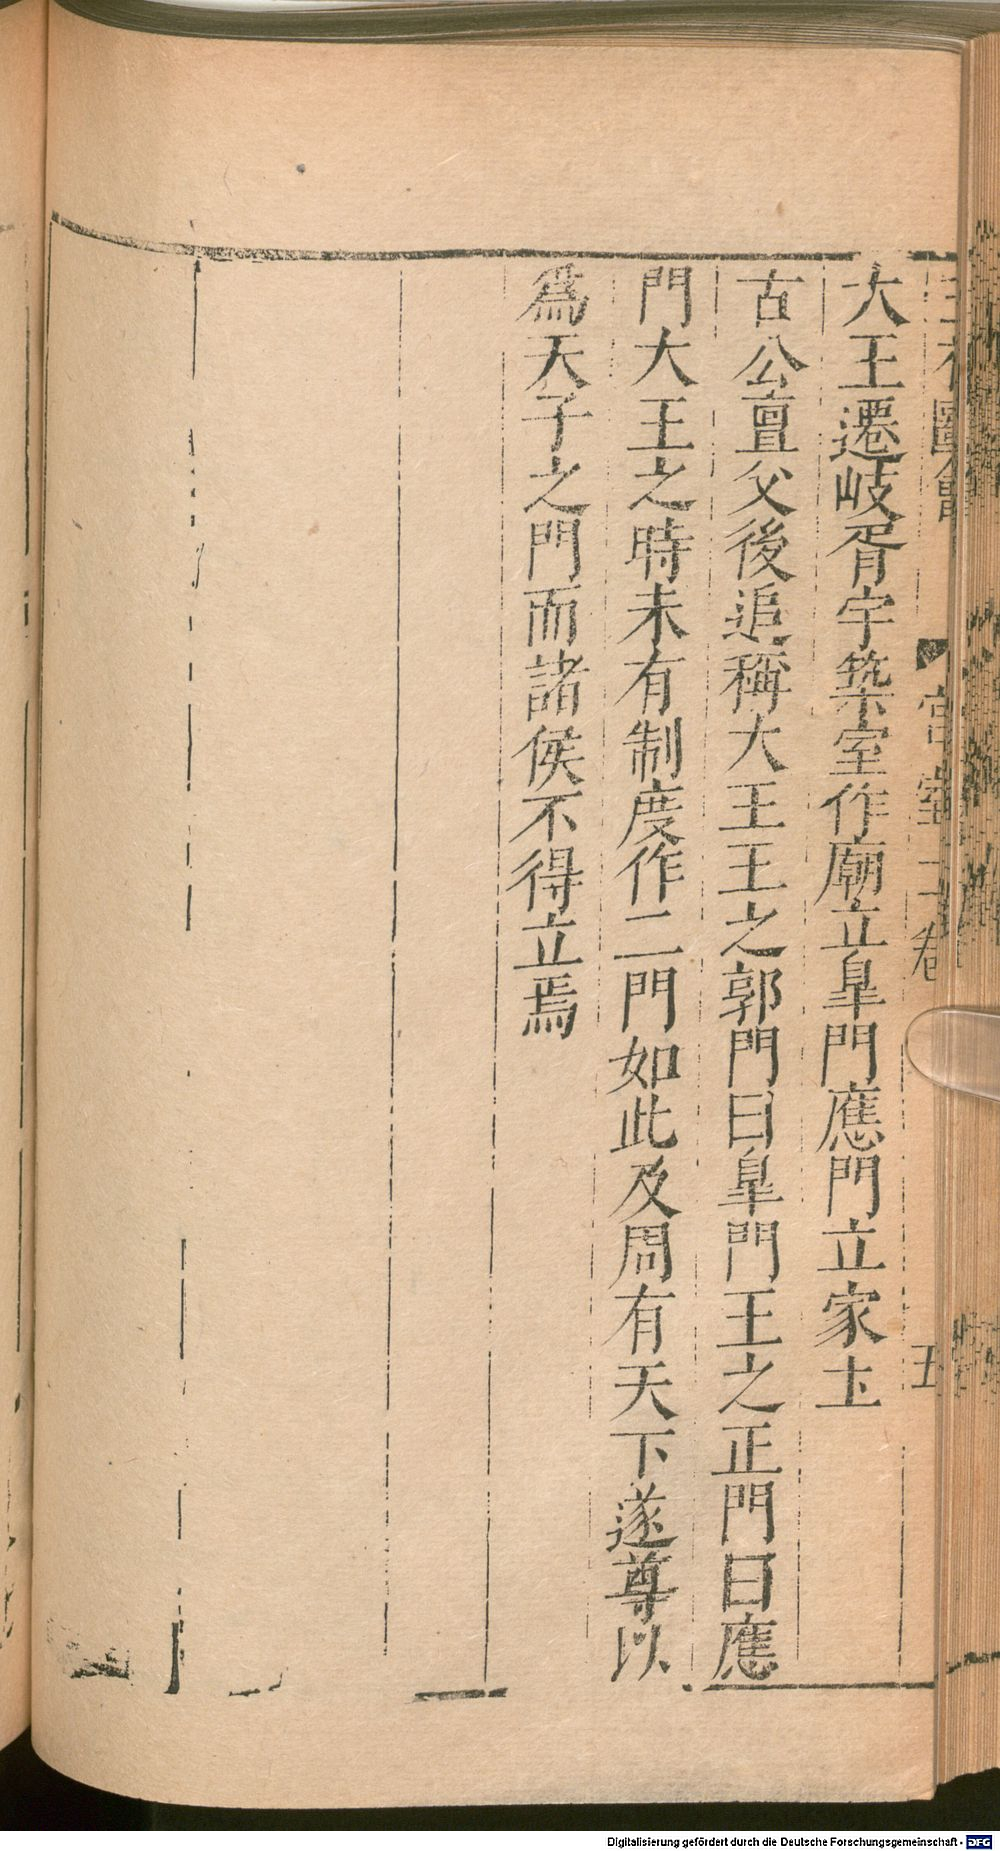 大王遷岐胥宇築室作廟立臯門應門立家𡈽
古公亶父後追稱大王王之郭門曰臯門王之正門曰應
門大王之時未有制度作二門如此及周有天下遂尊以
爲天子之門而諸侯不得立焉
圖會 宮室二卷 五
Digitalisierung gefördert durch die Deutsche Forschungsgemeinschaft - DFG